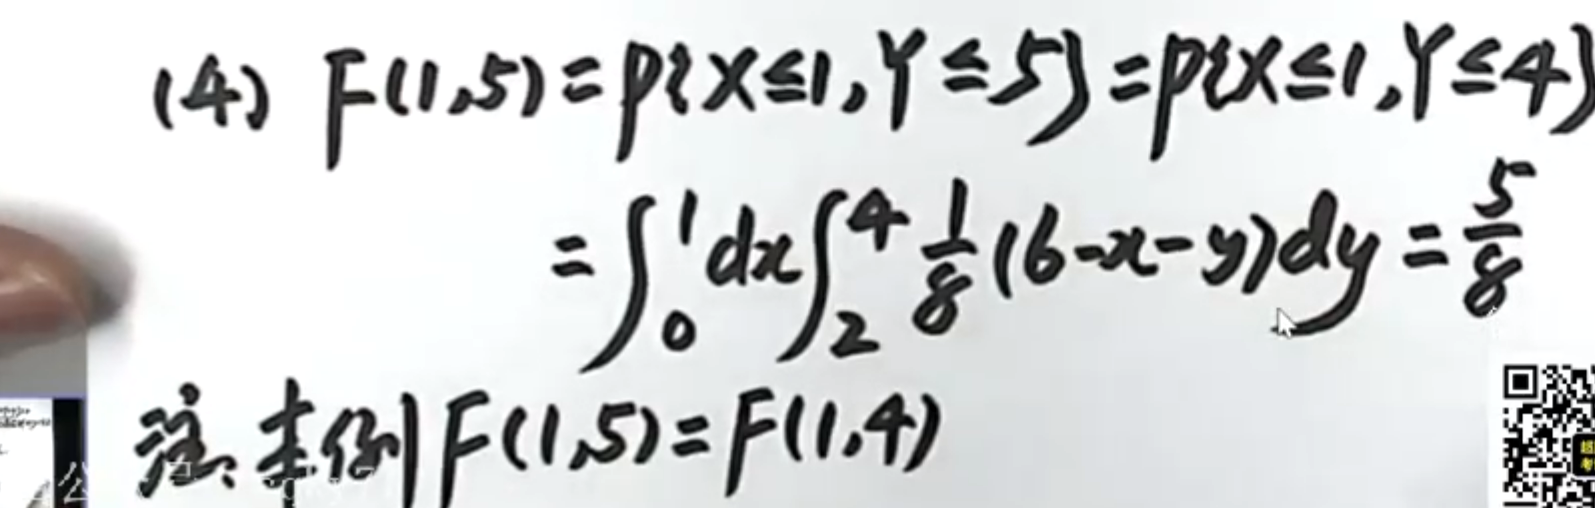 (4) F(1,5)=P{X≤1,Y≤5}=P{X≤1,Y≤4}
=∫₀¹dx∫₂⁴ 1/8 (6-x-y)dy = 5/8
注:本例 F(1,5)=F(1,4)
公